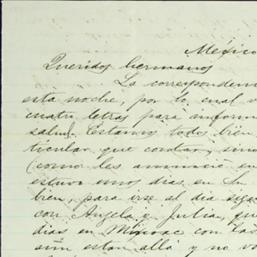 México
Queridos hermanos
La corresponden
esta noche, por lo cual v
cuatro letras para inform
salud. Estamos todos bien
ticular que contar, sino
(como les anuncié en
estuvo unos dias en Su
bien, para irse el dia sigu
con Angela y Julia, que
dias en Mixcoac con las
aún están allá y no vo